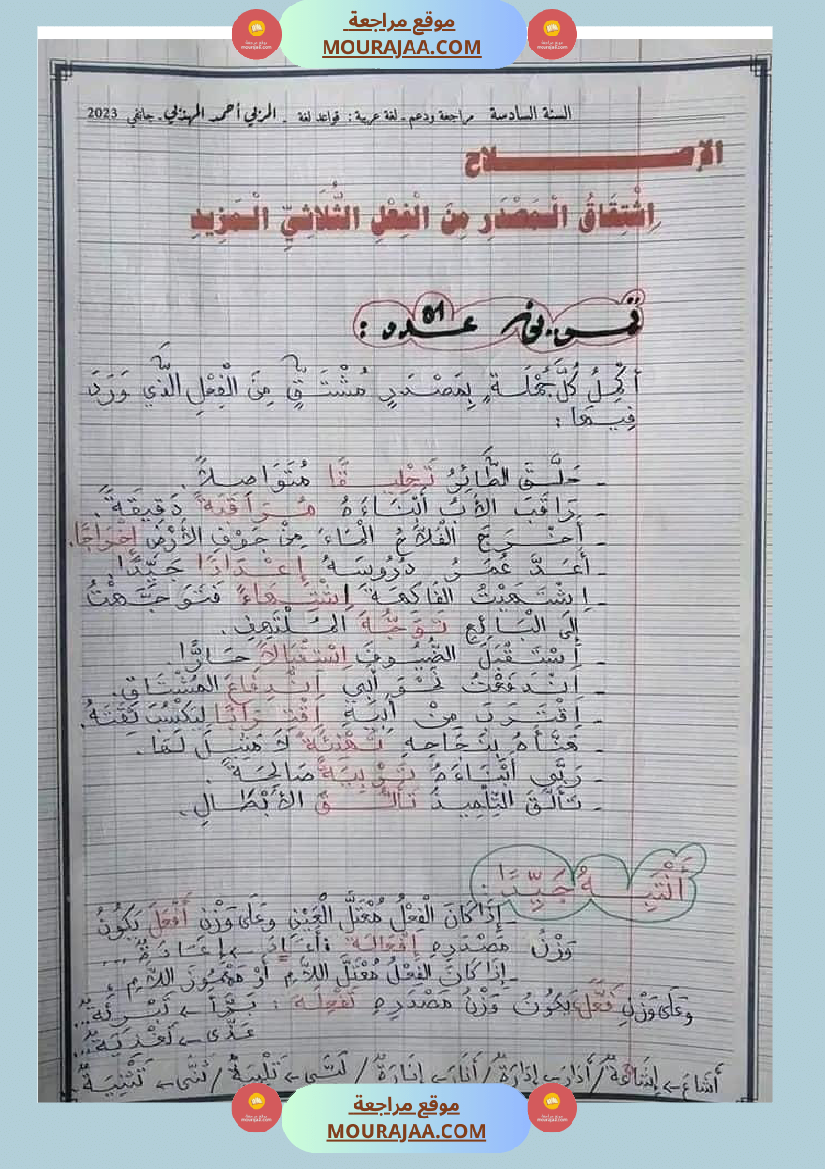 موقع مراجعة
MOURAJAA.COM
السنة السادسة مراجعة ودعم - لغة عربية: قواعد لغة - المربي أحمد المهذبي - جانفي 2023
الإصـــــــلاح
اِشْتِقَاقُ الْمَصْدَرِ مِنَ الْفِعْلِ الثُّلَاثِيِّ الْمَزِيدِ
تمـرين عـدد 01 :
أُكْمِلُ كُلَّ جُمْلَةٍ بِمَصْدَرٍ مُشْتَقٍّ مِنَ الْفِعْلِ الَّذِي وَرَدَ
فِيهَا :
- حَلَّقَ الطَّائِرُ تَحْلِيقًا مُتَوَاصِلاً.
- رَاقَبَ الأَبُ أَبْنَاءَهُ مُرَاقَبَةً دَقِيقَةً.
- أَخْرَجَ الْفَلَّاحُ الْمَاءَ مِنْ جَوْفِ الأَرْضِ إِخْرَاجًا.
- أَعَدَّ عُمَرُ دُرُوسَهُ إِعْدَادًا جَيِّدًا.
- اِشْتَهَيْتُ الْفَاكِهَةَ اِشْتِهَاءً فَتَوَجَّهْتُ
إِلَى الْبَائِعِ تَوَجُّهَ الْمُتَلَهِّفِ.
- اِسْتَقْبَلَ الضُّيُوفَ اِسْتِقْبَالاً حَارًّا.
- اِنْدَفَعْتُ نَحْوَ أَبِي اِنْدِفَاعَ الْمُشْتَاقِ.
- اِقْتَرَبَ مِنْ أَبِيهِ اِقْتِرَابًا لِيَكْسَبَ ثِقَتَهُ.
- هَنَّأَهُ بِنَجَاحِهِ تَهْنِئَةً لَا مَثِيلَ لَهَا.
- رَبَّى أَبْنَاءَهُ تَرْبِيَةً صَالِحَةً.
- تَأَلَّقَ التِّلْمِيذُ تَأَلُّقَ الأَبْطَالِ.
أَنْتَبِـــهُ جَيِّدًا :
- إِذَا كَانَ الْفِعْلُ مُعْتَلَّ الْعَيْنِ وَعَلَى وَزْنِ أَفْعَلَ يَكُونُ
وَزْنُ مَصْدَرِهِ إِفْعَالَة : أَعَادَ ← إِعَادَةٌ ...
- إِذَا كَانَ الْفِعْلُ مُعْتَلَّ اللَّامِ أَوْ مَهْمُوزَ اللَّامِ
وَعَلَى وَزْنِ فَعَّلَ يَكُونُ وَزْنُ مَصْدَرِهِ تَفْعِلَة : بَرَّأَ ← تَبْرِئَةٌ ...
عَدَّى ← تَعْدِيَةٌ ...
أَشَاعَ ← إِشَاعَةٌ / أَدَارَ ← إِدَارَةٌ / أَنَارَ ← إِنَارَةٌ / لَبَّى ← تَلْبِيَةٌ / ثَنَّى ← تَثْنِيَةٌ
موقع مراجعة
MOURAJAA.COM